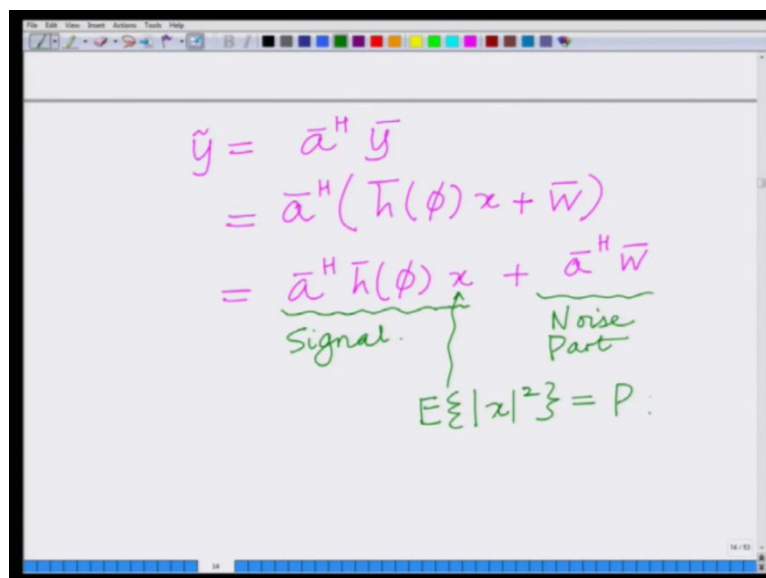 File Edit View Insert Actions Tools Help
B I
ỹ = ā^H ȳ
= ā^H ( h̄(φ) x + w̄ )
= ā^H h̄(φ) x + ā^H w̄
Signal. Noise
Part
E{|x|²} = P :
14 / 53
14